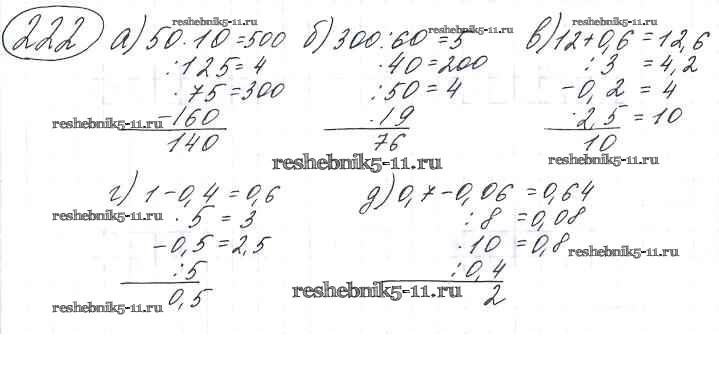 222 а) 50·10=500 б) 300:60=5 reshebnik5-11.ru в) 12+0,6=12,6
reshebnik5-11.ru
:125=4 ·40=200 :3 =4,2
·75=300 :50=4 -0,2 =4
reshebnik5-11.ru -160 ·19 ·2,5=10
140 76 10
reshebnik5-11.ru reshebnik5-11.ru
г) 1-0,4=0,6 д) 0,7-0,06=0,64
reshebnik5-11.ru ·5 =3 :8 =0,08
-0,5=2,5 ·10 =0,8 reshebnik5-11.ru
:5 :0,4
reshebnik5-11.ru 0,5 reshebnik5-11.ru 2